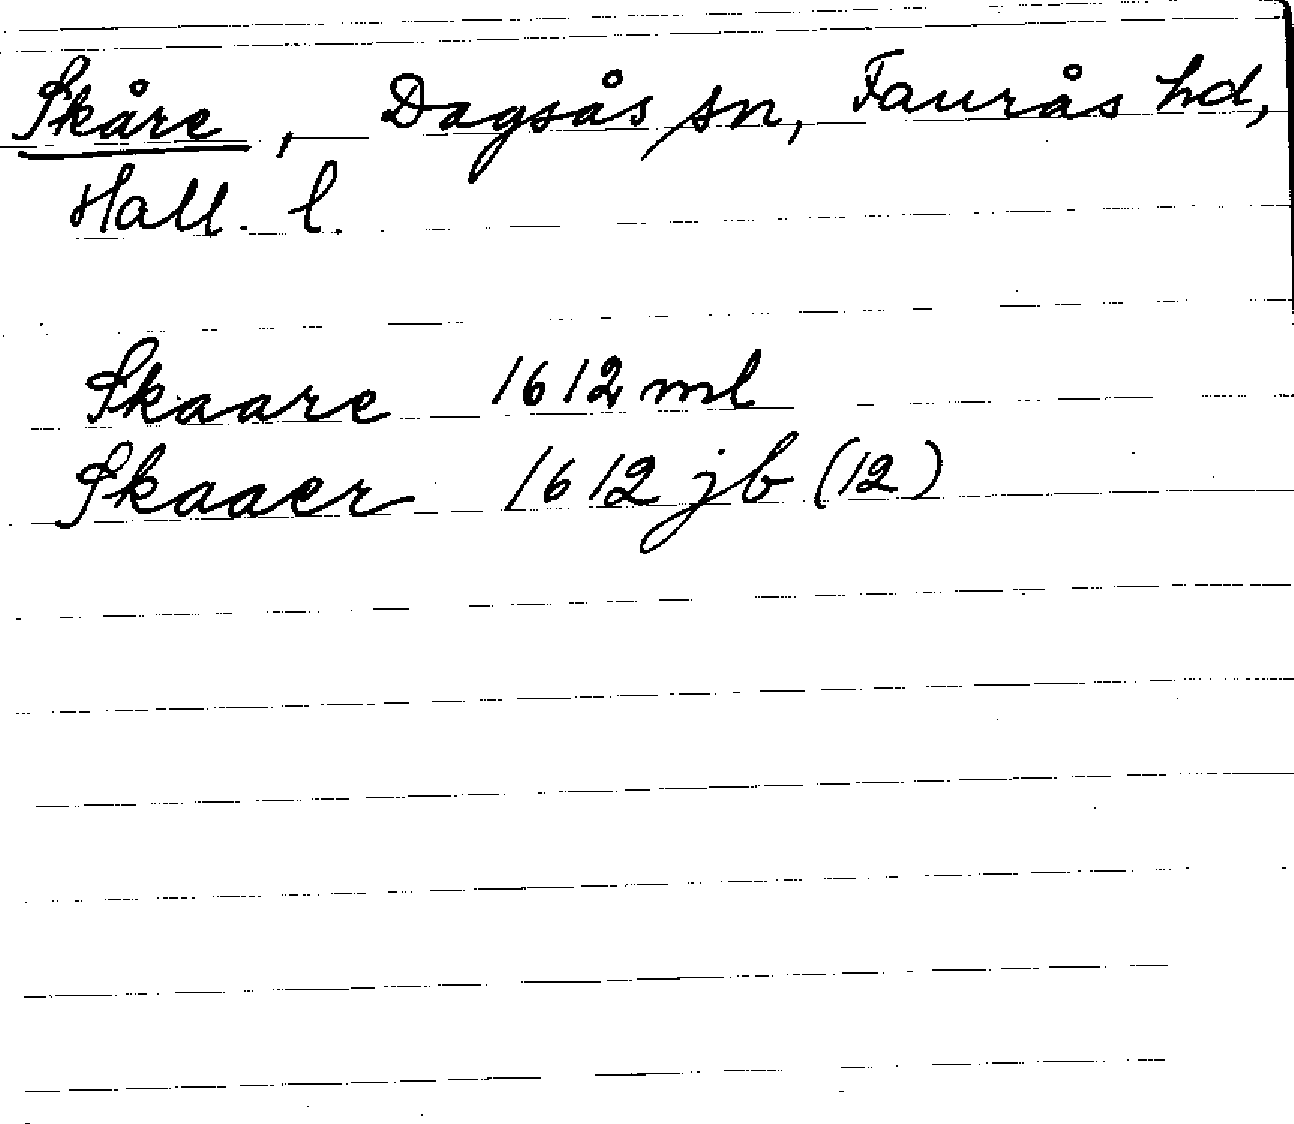 Skåre, Dagsås sn, Faurås hd,
Hall. l.
Skaare 1612 ml
Skaaer 1612 jb (12)